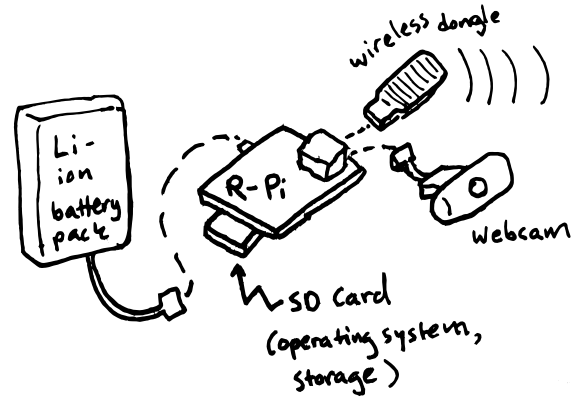 wireless dongle
Li-
ion
battery
pack
R-Pi
webcam
SD Card
(operating system,
storage)